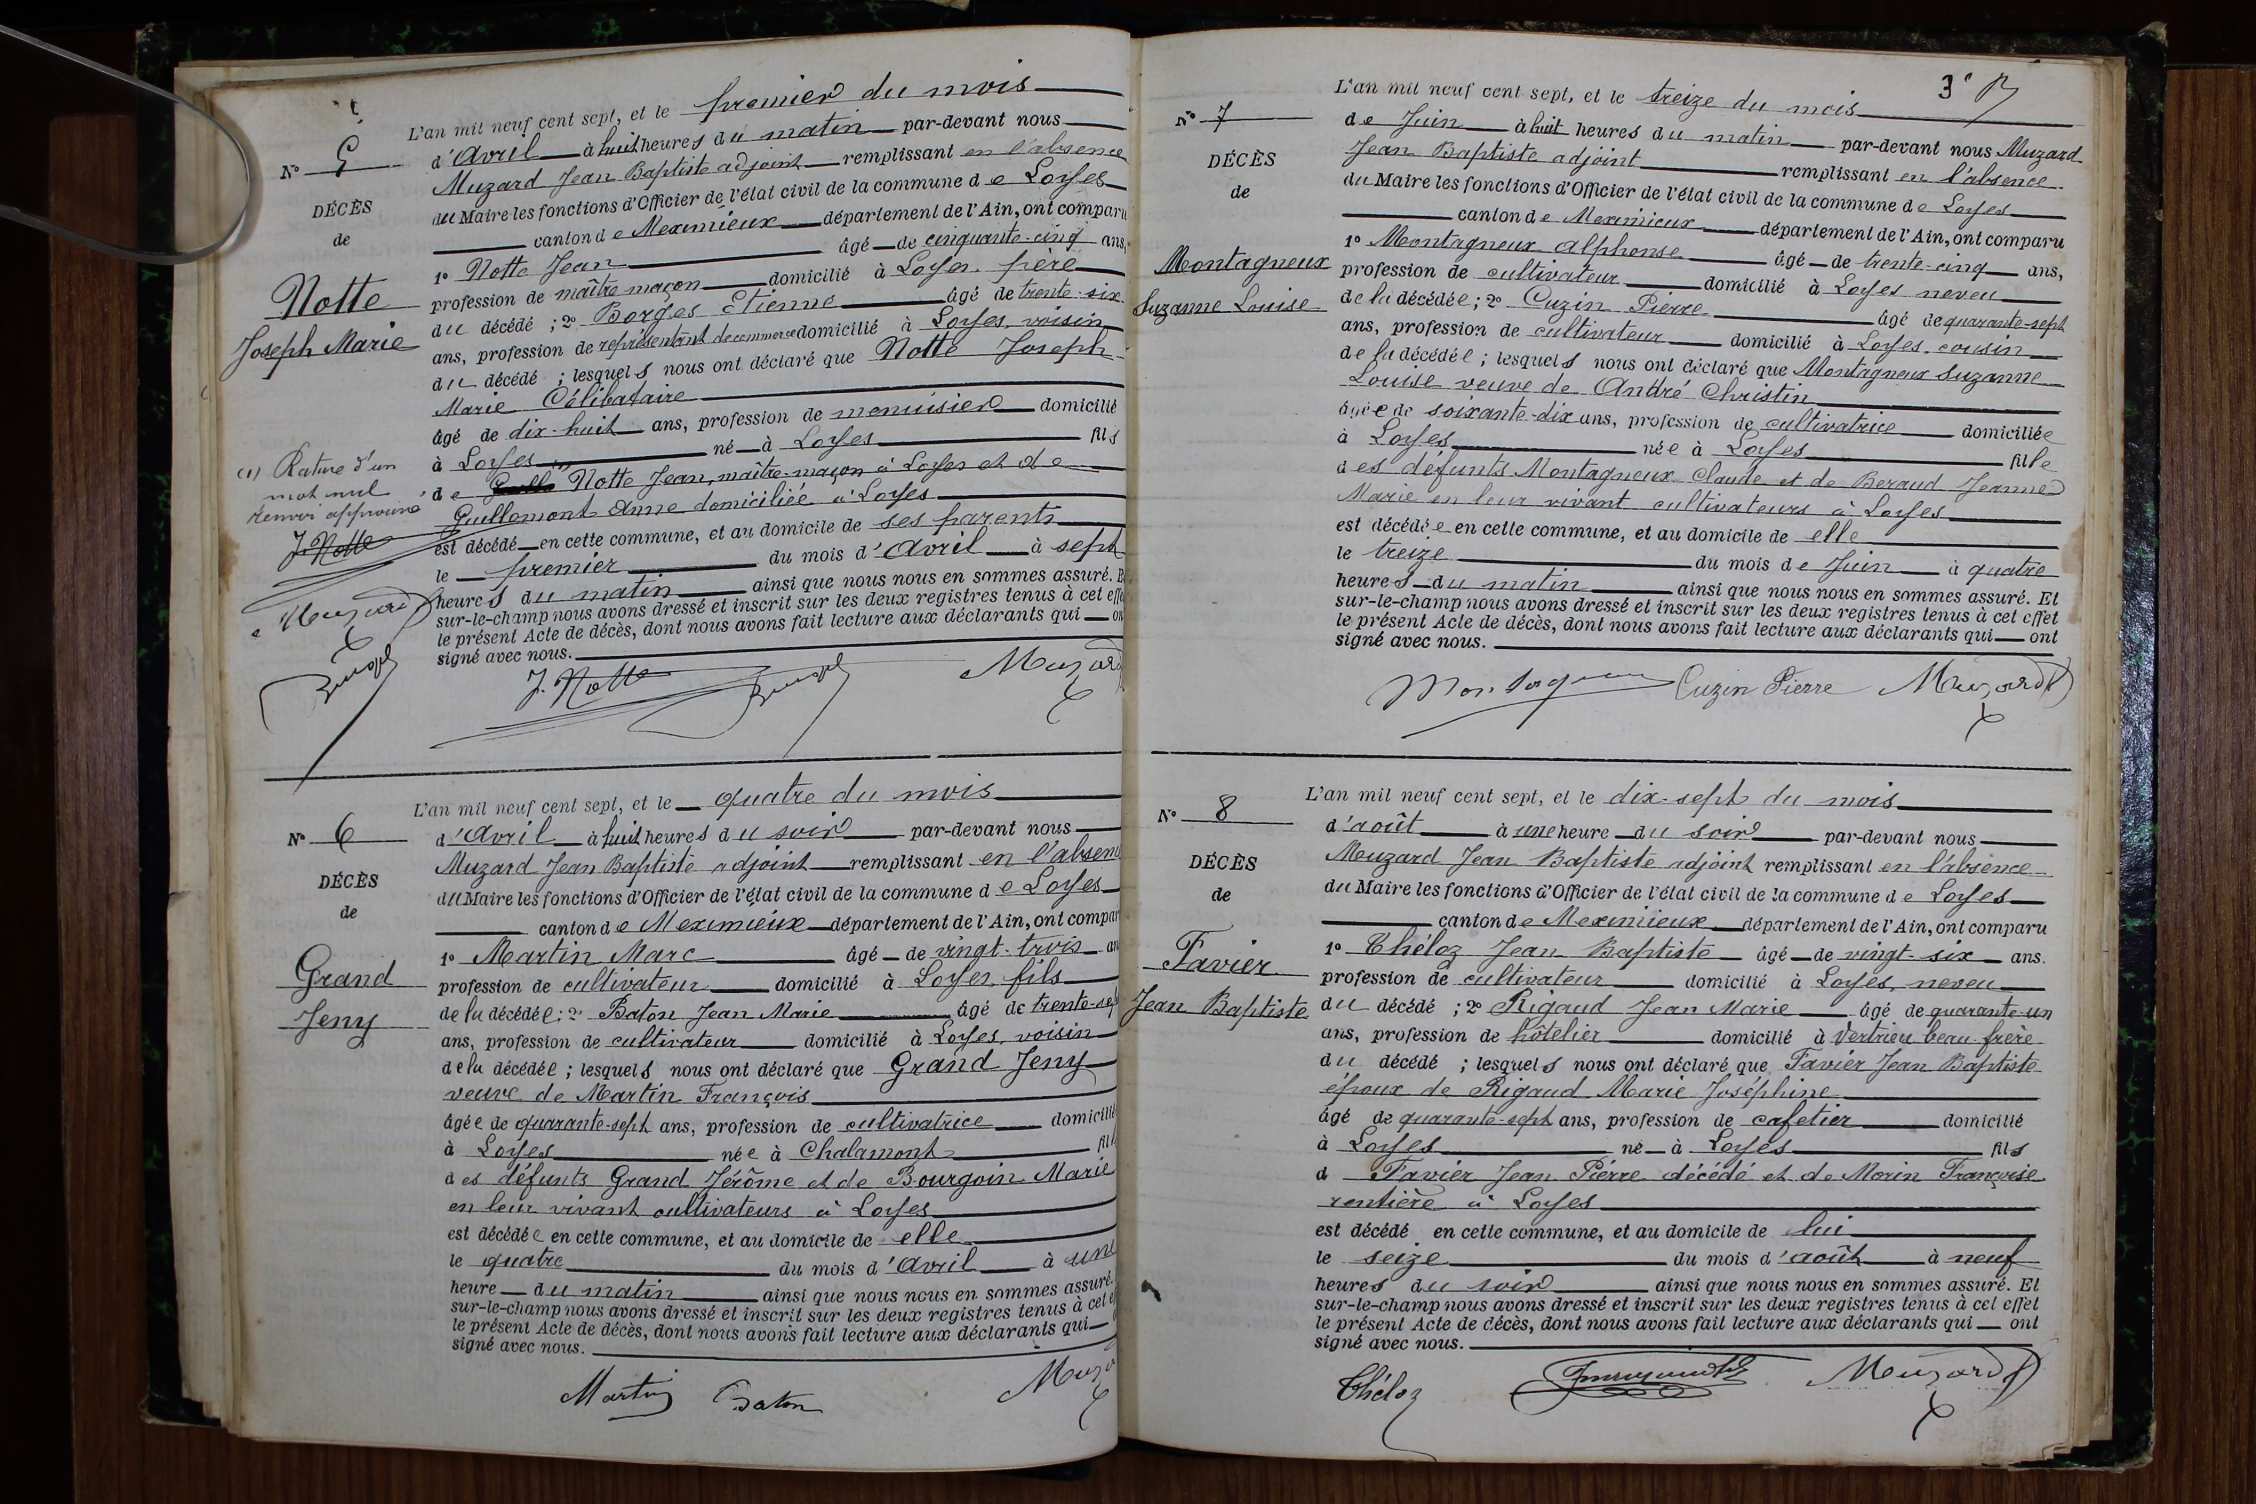 L'an mil neuf cent sept, et le premier du mois
N° 5
d'Avril à huit heures du matin par-devant nous
Muzard Jean Baptiste adjoint remplissant en l'absence
DÉCÈS
du Maire les fonctions d'Officier de l'état civil de la commune de Loyes
de
canton de Meximieux département de l'Ain, ont comparu
1° Notte Jean âgé de cinquante-cinq ans,
Notte
profession de maître maçon domicilié à Loyes, père
du décédé ; 2° Borges Etienne âgé de trente-six
Joseph Marie
ans, profession de représentant de commerce domicilié à Loyes, voisin
du décédé ; lesquels nous ont déclaré que Notte Joseph
Marie Célibataire
âgé de dix-huit ans, profession de menuisier domicilié
à Loyes né à Loyes fils
(1) Rature d'un
mot nul
renvoi approuvé
de Notte Jean, maître-maçon à Loyes et de
Guillemont Anne domiciliée à Loyes
J. Notte
est décédé en cette commune, et au domicile de ses parents
le premier du mois d'Avril à sept
heures du matin ainsi que nous nous en sommes assuré. E
Muzard
sur-le-champ nous avons dressé et inscrit sur les deux registres tenus à cet effe
le présent Acte de décès, dont nous avons fait lecture aux déclarants qui on
signé avec nous.
J. Notte Muzard
L'an mil neuf cent sept, et le quatre du mois
N° 6
d'Avril à huit heures du soir par-devant nous
Muzard Jean Baptiste adjoint remplissant en l'absenc
DÉCÈS
du Maire les fonctions d'Officier de l'état civil de la commune de Loyes
de
canton de Meximieux département de l'Ain, ont compar
1° Martin Marc âgé de vingt-trois an
Grand
profession de cultivateur domicilié à Loyes, fils
Jeny
de la décédée ; 2° Baton Jean Marie âgé de trente-sep
ans, profession de cultivateur domicilié à Loyes, voisin
de la décédée ; lesquels nous ont déclaré que Grand Jeny
veuve de Martin François
âgée de quarante-sept ans, profession de cultivatrice domicilié
à Loyes née à Chalamont fill
des défunts Grand Jérôme et de Bourgoin Marie
en leur vivant cultivateurs à Loyes
est décédée en cette commune, et au domicile de elle
le quatre du mois d'Avril à une
heure du matin ainsi que nous nous en sommes assuré.
sur-le-champ nous avons dressé et inscrit sur les deux registres tenus à cet e
le présent Acte de décès, dont nous avons fait lecture aux déclarants qui
signé avec nous.
Martin Baton Muza
3e
L'an mil neuf cent sept, et le treize du mois
N° 7
de Juin à huit heures du matin par-devant nous Muzard
Jean Baptiste adjoint remplissant en l'absence
DÉCÈS
du Maire les fonctions d'Officier de l'état civil de la commune de Loyes
de
canton de Meximieux département de l'Ain, ont comparu
1° Montagneux Alphonse âgé de trente-cinq ans,
Montagneux
profession de cultivateur domicilié à Loyes neveu
Suzanne Louise
de la décédée ; 2° Cuzin Pierre âgé de quarante-sept
ans, profession de cultivateur domicilié à Loyes, cousin
de la décédée ; lesquels nous ont déclaré que Montagneux Suzanne
Louise veuve de André Christin
âgée de soixante-dix ans, profession de cultivatrice domiciliée
à Loyes née à Loyes fille
des défunts Montagneux Claude et de Beraud Jeanne
Marie en leur vivant cultivateurs à Loyes
est décédée en cette commune, et au domicile de elle
le treize du mois de Juin à quatre
heures du matin ainsi que nous nous en sommes assuré. Et
sur-le-champ nous avons dressé et inscrit sur les deux registres tenus à cet effet
le présent Acte de décès, dont nous avons fait lecture aux déclarants qui ont
signé avec nous.
Montagneux Cuzin Pierre Muzard
L'an mil neuf cent sept, et le dix-sept du mois
N° 8
d'août à une heure du soir par-devant nous
Muzard Jean Baptiste adjoint remplissant en l'absence
DÉCÈS
du Maire les fonctions d'Officier de l'état civil de la commune de Loyes
de
canton de Meximieux département de l'Ain, ont comparu
1° Théloz Jean Baptiste âgé de vingt-six ans.
Favier
profession de cultivateur domicilié à Loyes, neveu
Jean Baptiste
du décédé ; 2° Rigaud Jean Marie âgé de quarante-un
ans, profession de hôtelier domicilié à Vertrieu beau-frère
du décédé ; lesquels nous ont déclaré que Favier Jean Baptiste
époux de Rigaud Marie Joséphine
âgé de quarante-sept ans, profession de cafetier domicilié
à Loyes né à Loyes fils
d Favier Jean Pierre décédé et de Morin Françoise
rentière à Loyes
est décédé en cette commune, et au domicile de lui
le seize du mois d'août à neuf
heures du soir ainsi que nous nous en sommes assuré. Et
sur-le-champ nous avons dressé et inscrit sur les deux registres tenus à cet effet
le présent Acte de décès, dont nous avons fait lecture aux déclarants qui ont
signé avec nous.
Théloz Muzard